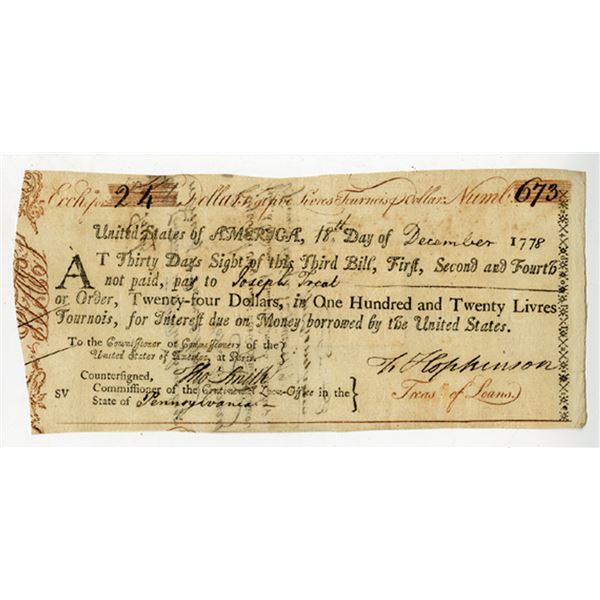 Exch. for 24 Dollars at five Livres Tournois p Dollar. Numb. 673
United States of AMERICA, 18th Day of December 1778
AT Thirty Days Sight of this Third Bill, First, Second and Fourth
not paid, pay to Joseph Treat
or Order, Twenty-four Dollars, in One Hundred and Twenty Livres
Tournois, for Interest due on Money borrowed by the United States.
To the Commissioner or Commissioners of the
United States of America, at Paris.
F Hopkinson
Countersigned, Tho Smith
Treasr of Loans.
SV Commissioner of the Continental Loan-Office in the
State of Pennsylvania